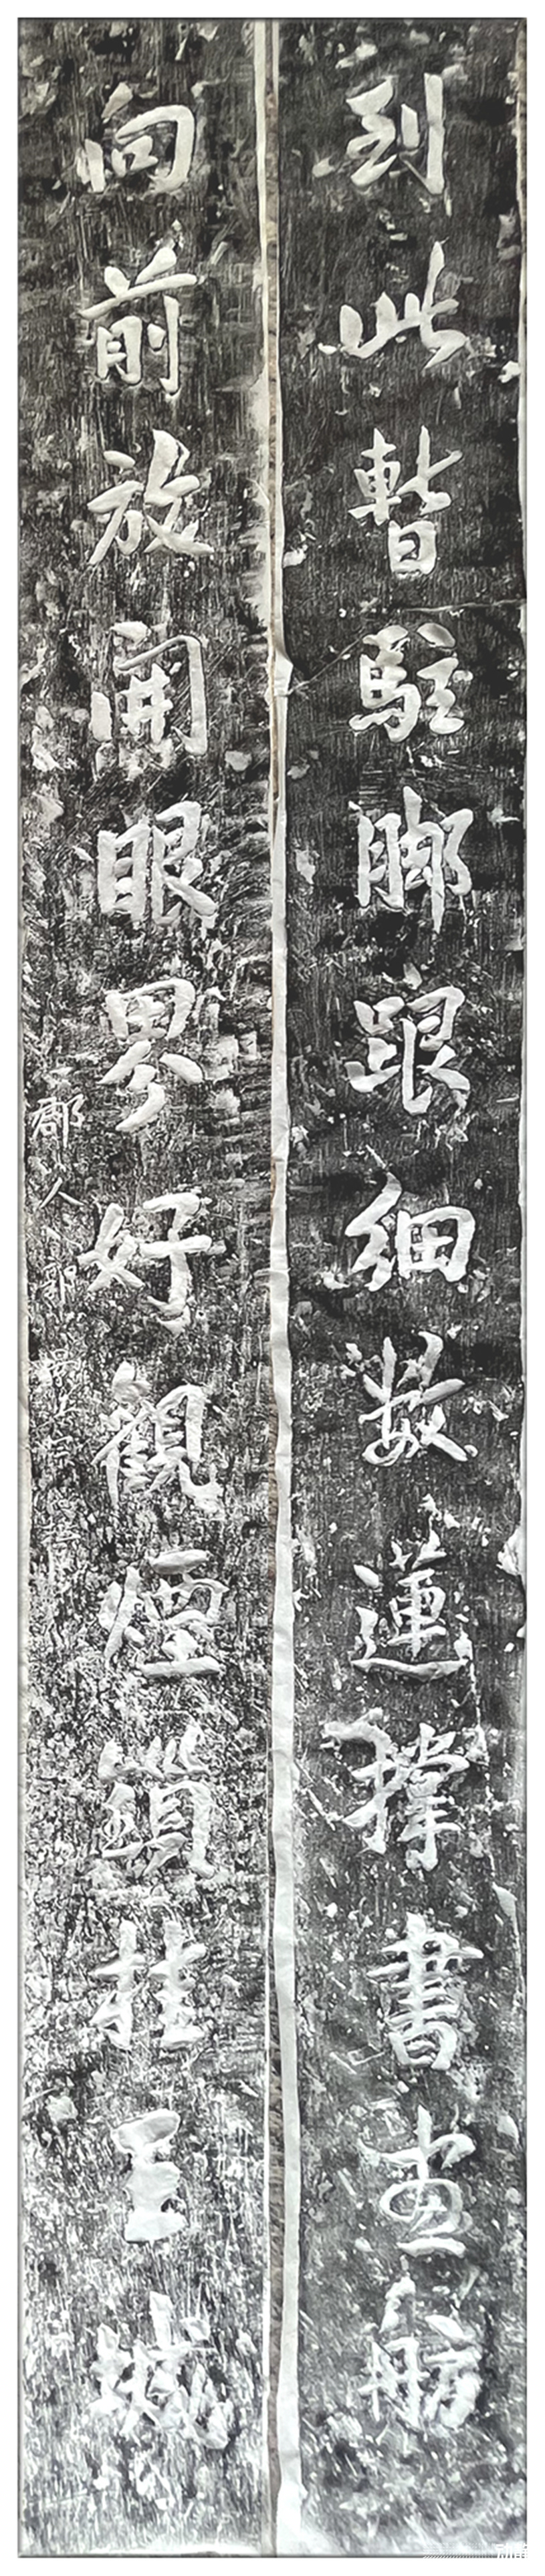 到此暫駐腳跟細数蓮撐書畫舫
向前放開眼界好觀煙鎖桂王城
郡人